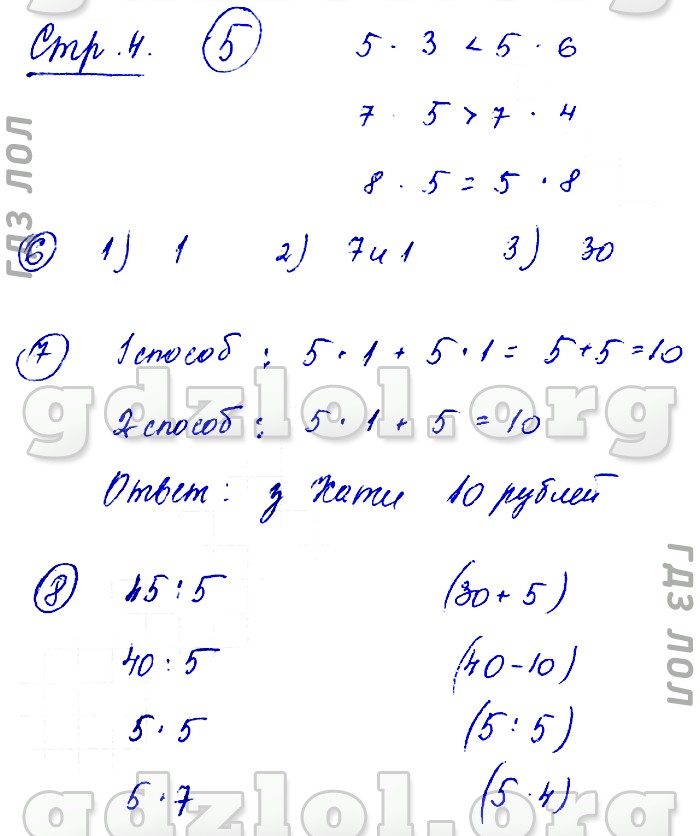 Стр. 4. 5 5 · 3 < 5 · 6
7 · 5 > 7 · 4
8 · 5 = 5 · 8
6 1) 1 2) 7 и 1 3) 30
7 1 способ : 5 · 1 + 5 · 1 = 5 + 5 = 10
2 способ : 5 · 1 + 5 = 10
Ответ : у Кати 10 рублей
8 45 : 5 (30 + 5)
40 : 5 (40 - 10)
5 · 5 (5 : 5)
5 · 7 (5 · 4)
gdzlol.org
gdzlol.org
gdzlol.org
гдз лол
гдз лол